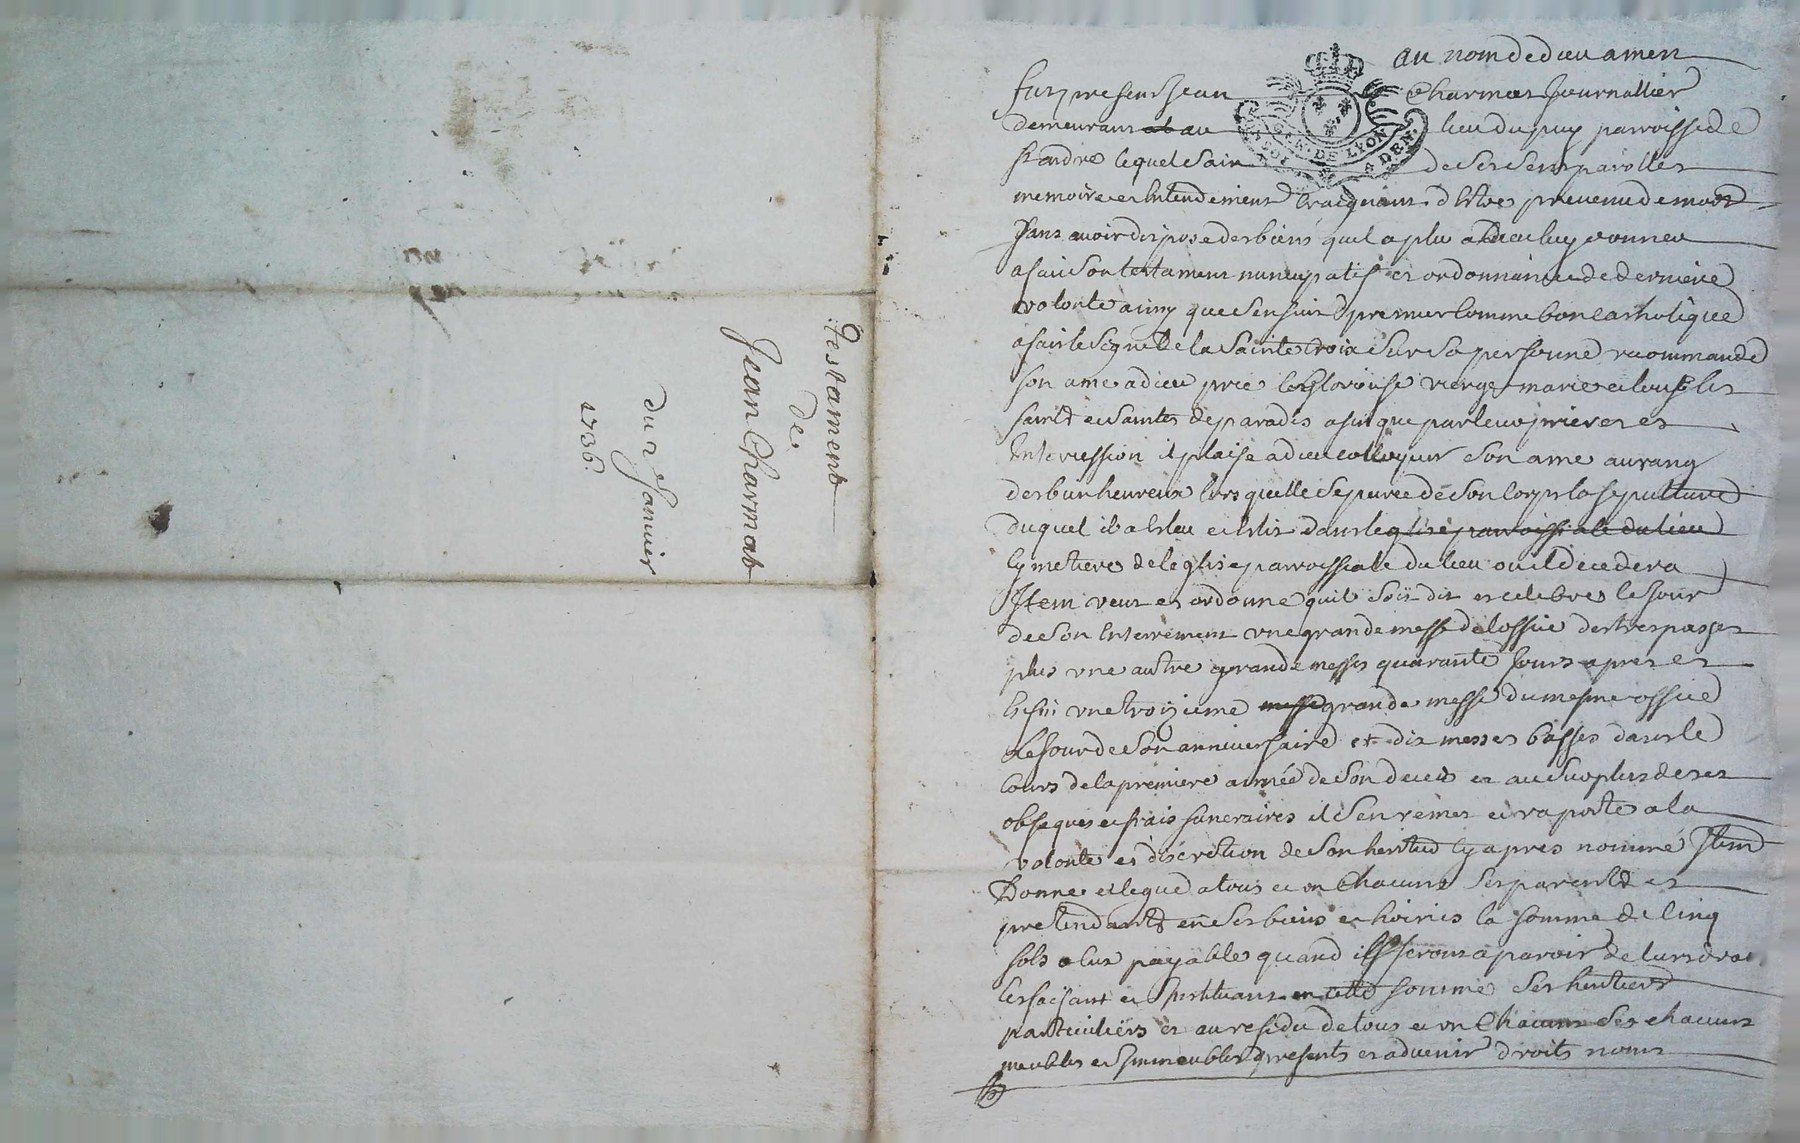 Testament
de
Jean Charmat
du 2 Janvier
1736.
au nom de dieu amen
fut present Jean Charmat Journallier
demeurant au lieu du puy parroisse de
st andre lequel sain de ses sens parolles
memoire et entendement craignant d'estre prevenu de mort
sans avoir dispose des biens quil a plu a Dieu luy donner
a fait son testament nuncupatif et ordonnance de derniere
volonte ainsy que sensuit premier comme bon catholique
a fait le signe de la sainte Croix sur sa personne recommande
son ame a dieu prie la glorieuse vierge marie et tous les
saints et saintes de paradis afin que par leurs prieres et
Intercession il plaise a dieu colloquer son ame au rang
des bienheureux lors quelle sepuree de son corps la sepulture
duquel il a esleu et eslit dans leglise parroissiale du lieu
cymetiere de leglise parroissiale du lieu ou il decedera
Item veut et ordonne quil soit dit et celebre le Jour
de son enterrement une grande messe de loffice des trespasses
plus une autre grande messe quarante Jours apres et
Enfin une troizieme messe grande messe du mesme office
le Jour de son anniversaire et dix messes basses dans le
cours de la premiere année de son deces et au surplus de ses
obseques et frais funeraires il sen remet et raporte a la
volonte et discretion de son heritier cy apres nommé Item
Donne et legue a tous et un chacuns ses parents et
pretendants en ses biens et hoiries la somme de cinq
sols a eux payable quand ils feront aparoir de leurs droits
les faisant et Instituant en cette somme ses heritiers
particuliers et au residu de tous et un chacuns ses chacuns
meubles et Immeubles presents et advenir droits noms